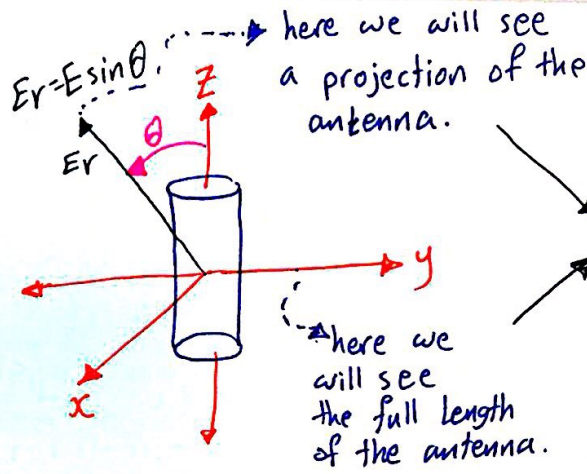 here we will see
a projection of the
antenna.
Er=Esinθ
z
θ
Er
y
x
here we
will see
the full length
of the antenna.